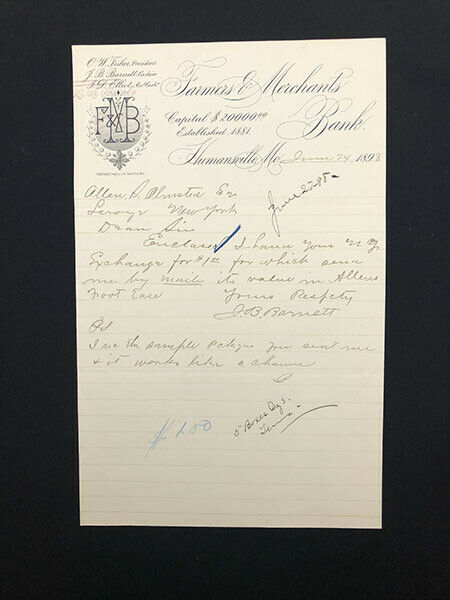 O. W. Fisher, President
J. B. Barnett, Cashier
Farmers & Merchants
Bank.
Capital $20000.00
Established 1881.
F&MB
Humansville, Mo. June 24 1898
Allen S. Olmsted Esq
Leroy New York
June 27 98
Dear Sir
Enclosed I hand you N Y
Exchange for $1.00 for which send
me by maile its value in Allens
Foot Ease
Yours Respcty
J. B. Barnett
PS
I rec the sample Packge you sent me
& it works like a charm
$1.00
5 Boxes